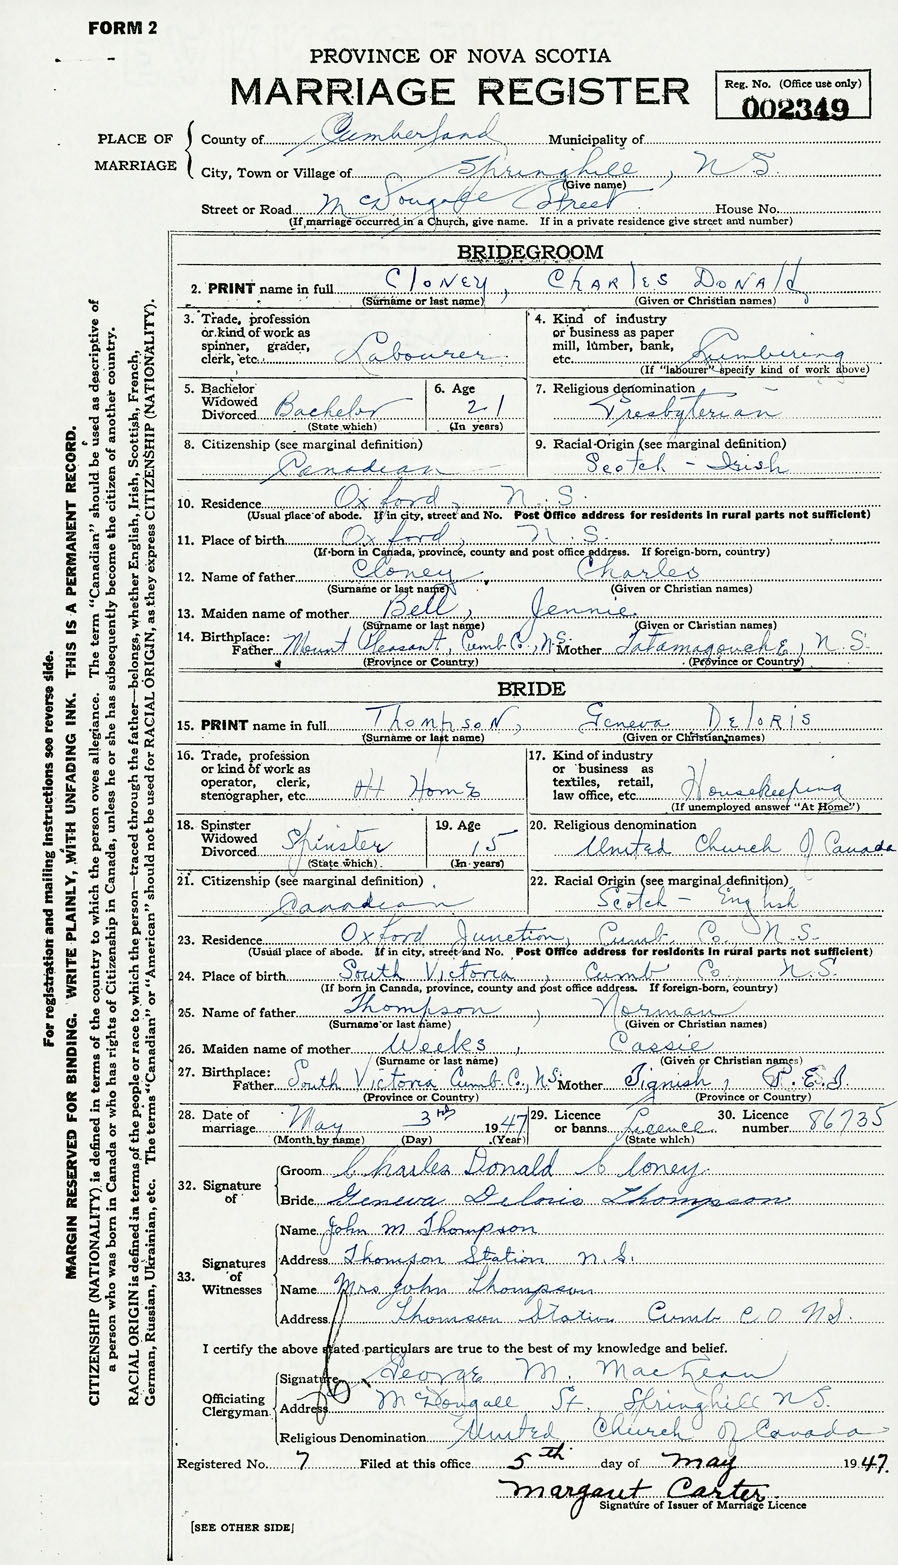 FORM 2
PROVINCE OF NOVA SCOTIA
MARRIAGE REGISTER
Reg. No. (Office use only)
002349
PLACE OF MARRIAGE
County of Cumberland Municipality of
City, Town or Village of Springhill, N.S.
(Give name)
Street or Road McDougall Street House No.
(If marriage occurred in a Church, give name. If in a private residence give street and number)
BRIDEGROOM
2. PRINT name in full Cloney, Charles Donald
(Surname or last name) (Given or Christian names)
3. Trade, profession or kind of work as spinner, grader, clerk, etc. Labourer
4. Kind of industry or business as paper mill, lumber, bank, etc. Lumbering
(If "labourer" specify kind of work above)
5. Bachelor Widowed Divorced Bachelor
(State which)
6. Age 21
(In years)
7. Religious denomination Presbyterian
8. Citizenship (see marginal definition) Canadian
9. Racial Origin (see marginal definition) Scotch - Irish
10. Residence Oxford, N.S.
(Usual place of abode. If in city, street and No. Post Office address for residents in rural parts not sufficient)
11. Place of birth Oxford, N.S.
(If born in Canada, province, county and post office address. If foreign-born, country)
12. Name of father Cloney, Charles
(Surname or last name) (Given or Christian names)
13. Maiden name of mother Bell, Jennie
(Surname or last name) (Given or Christian names)
14. Birthplace: Father Mount Pleasant, Cumb. Co., N.S. Mother Tatamagouche, N.S.
(Province or Country) (Province or Country)
BRIDE
15. PRINT name in full Thompson, Geneva Deloris
(Surname or last name) (Given or Christian names)
16. Trade, profession or kind of work as operator, clerk, stenographer, etc. At Home
17. Kind of industry or business as textiles, retail, law office, etc. Housekeeping
(If unemployed answer "At Home")
18. Spinster Widowed Divorced Spinster
(State which)
19. Age 15
(In years)
20. Religious denomination United Church of Canada
21. Citizenship (see marginal definition) Canadian
22. Racial Origin (see marginal definition) Scotch - English
23. Residence Oxford Junction, Cumb. Co. N.S.
(Usual place of abode. If in city, street and No. Post Office address for residents in rural parts not sufficient)
24. Place of birth South Victoria, Cumb Co. N.S.
(If born in Canada, province, county and post office address. If foreign-born, country)
25. Name of father Thompson, Norman
(Surname or last name) (Given or Christian names)
26. Maiden name of mother Weeks, Cassie
(Surname or last name) (Given or Christian names)
27. Birthplace: Father South Victoria Cumb. Co., N.S. Mother Tignish, P.E.I.
(Province or Country) (Province or Country)
28. Date of marriage May 3rd 1947
(Month by name) (Day) (Year)
29. Licence or banns Licence
(State which)
30. Licence number 86735
32. Signature of
Groom Charles Donald Cloney
Bride Geneva Deloris Thompson
33. Signatures of Witnesses
Name John M Thompson
Address Thomson Station N.S.
Name Mrs John Thompson
Address Thomson Station Cumb CO NS.
I certify the above stated particulars are true to the best of my knowledge and belief.
Officiating Clergyman
Signature George M. MacLean
Address McDougall St. Springhill N.S.
Religious Denomination United Church of Canada
Registered No. 7 Filed at this office 5th day of May 1947.
Margaret Carter
Signature of Issuer of Marriage Licence
[SEE OTHER SIDE]
For registration and mailing instructions see reverse side.
MARGIN RESERVED FOR BINDING. WRITE PLAINLY, WITH UNFADING INK. THIS IS A PERMANENT RECORD.
CITIZENSHIP (NATIONALITY) is defined in terms of the country to which the person owes allegiance. The term "Canadian" should be used as descriptive of
a person who was born in Canada or who has rights of Citizenship in Canada, unless he or she has subsequently become the citizen of another country.
RACIAL ORIGIN is defined in terms of the people or race to which the person—traced through the father—belongs, whether English, Irish, Scottish, French,
German, Russian, Ukrainian, etc. The terms "Canadian" or "American" should not be used for RACIAL ORIGIN, as they express CITIZENSHIP (NATIONALITY).